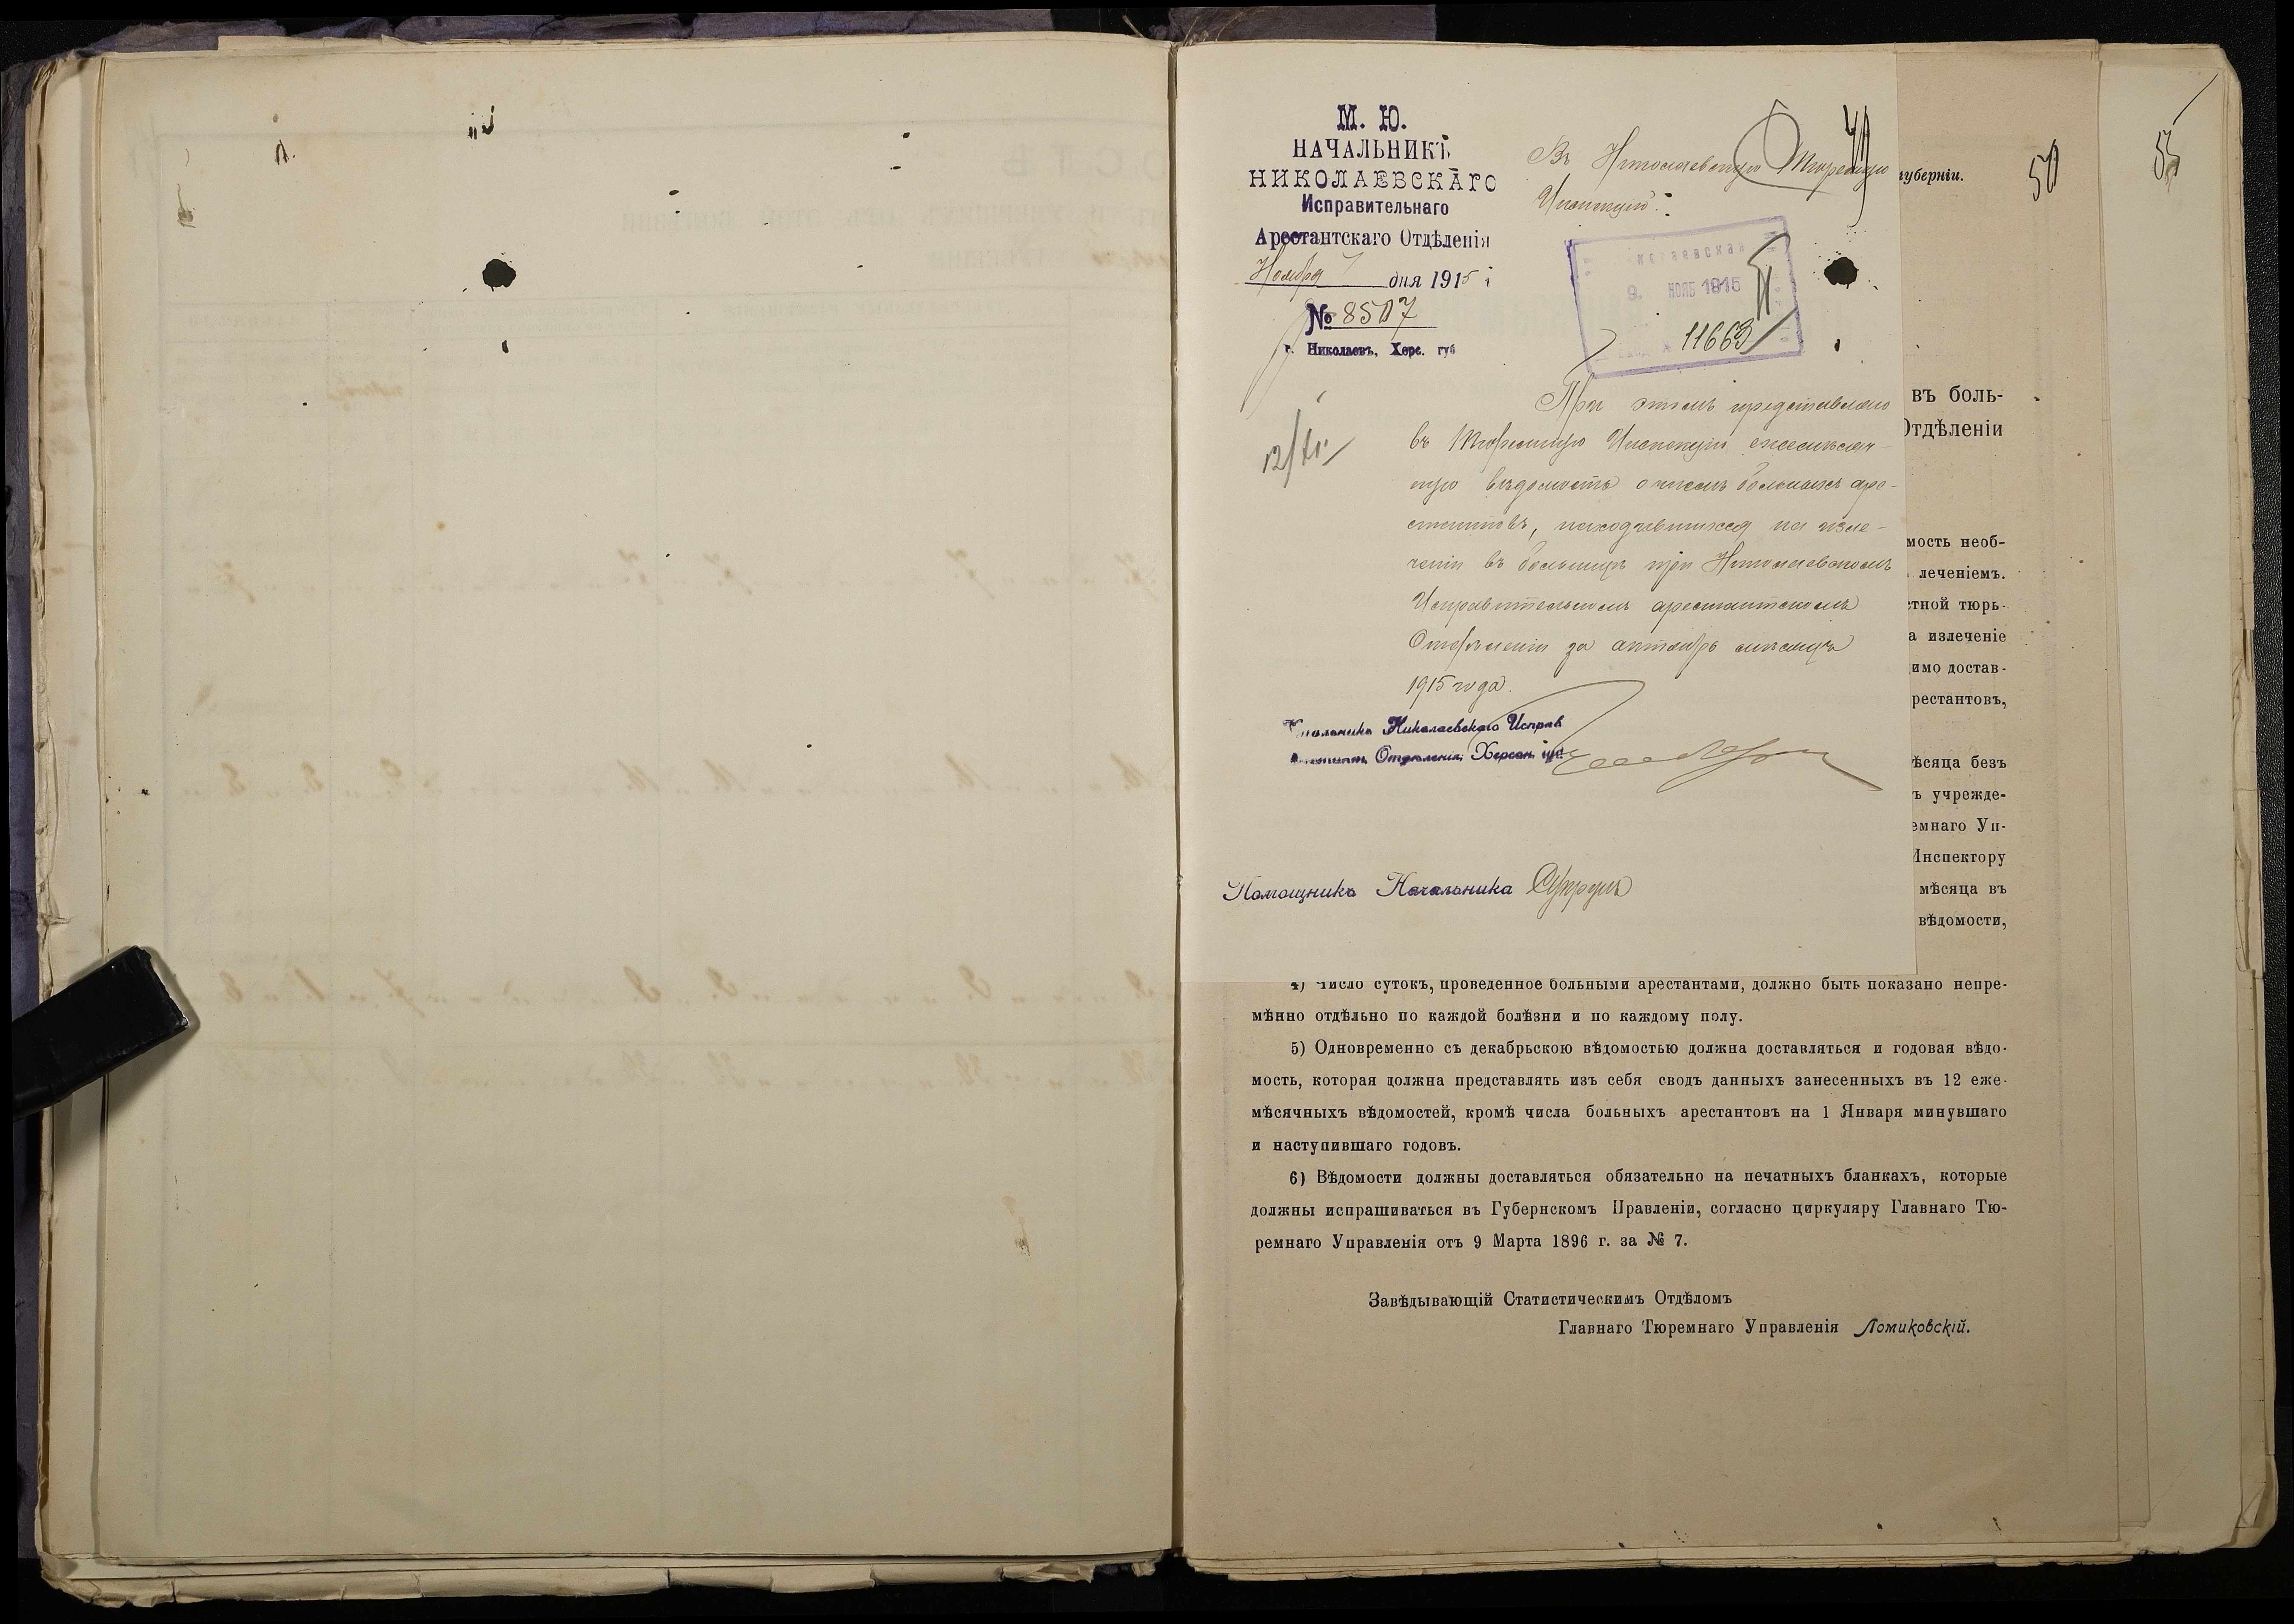 М. Ю.
НАЧАЛЬНИКЪ
НИКОЛАЕВСКАГО
Исправительнаго
Арестантскаго Отдѣленія
Ноября 7 дня 1915 г
№ 8507
г. Николаевъ, Херс. губ
12/XI
Въ Николаевскую Тюремную
Инспекцію.
49
9. НОЯБ 1915
11663
При этомъ представляю
въ Тюремную Инспекцію ежемѣсяч-
ную вѣдомость о числѣ больныхъ аре-
стантовъ, находившихся на изле-
ченіи въ больницѣ при Николаевскомъ
Исправительномъ арестантскомъ
Отдѣленіи за октябрь мѣсяцъ
1915 года.
Начальникъ Николаевскаго Исправ
Отдѣленія, Херсон. губ.
Помощникъ Начальника
губерніи.
50
55
въ боль-
Отдѣленіи
мость необ-
леченіемъ.
стной тюрь-
а излеченіе
имо достав-
рестантовъ,
ѣсяца безъ
ъ учрежде-
емнаго Уп-
Инспектору
мѣсяца въ
вѣдомости,
4) Число сутокъ, проведенное больными арестантами, должно быть показано непре-
мѣнно отдѣльно по каждой болѣзни и по каждому полу.
5) Одновременно съ декабрьскою вѣдомостью должна доставляться и годовая вѣдо-
мость, которая должна представлять изъ себя сводъ данныхъ занесенныхъ въ 12 еже-
мѣсячныхъ вѣдомостей, кромѣ числа больныхъ арестантовъ на 1 Января минувшаго
и наступившаго годовъ.
6) Вѣдомости должны доставляться обязательно на печатныхъ бланкахъ, которые
должны испрашиваться въ Губернскомъ Правленіи, согласно циркуляру Главнаго Тю-
ремнаго Управленія отъ 9 Марта 1896 г. за № 7.
Завѣдывающій Статистическимъ Отдѣломъ
Главнаго Тюремнаго Управленія Ломиковскій.